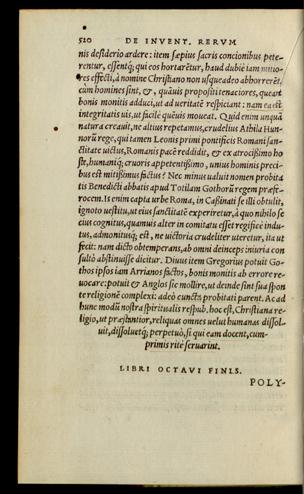 520 DE INVENT. RERVM
nis desiderio ardere: item sæpius sacris concionibus pete-
rentur, essentq́; qui eos hortarẽtur, haud dubiè iam muio-
res effecti, à nomine Christiano non usqueadeo abhorrerẽt,
cùm homines sint, &, quãuis propositi tenaciores, queant
bonis monitis adduci, ut ad ueritatẽ respiciant: nam ea est
integritatis uis, ut facilè quẽuis moueat. Quid enim unquã
natura creauit, ne altius repetamus, crudelius Athila Hun-
norũ rege, qui tamen Leonis primi pontificis Romani san-
ctitate uictus, Romanis pacẽ reddidit, & ex atrocißimo ho
ste, humaniq́; cruoris appetentißimo, unius hominis preci-
bus est mitißimus factus? Nec minus ualuit nomen probita
tis Benedicti abbatis apud Totilam Gothorũ regem præfe-
rocem. Is enim capta urbe Roma, in Caßinati se illi obtulit,
ignoto uestitu, ut eius sanctitatẽ experiretur, à quo nihilo se
cius cognitus, quamuis alter in comitatu esset regificè indu-
tus, admonitusq́; est, ne uictoria crudeliter uteretur, ita ut
fecit: nam dicto obtemperans, ab omni deinceps iniuria con
sultò abstinuisse dicitur. Diuus item Gregorius potuit Go-
thos ipsos iam Arrianos factos, bonis monitis ab errore re-
uocare: potuit & Anglos sic mollire, ut deinde sint sua spon
te religionẽ complexi: adeò cunctis probitati parent. Ac ad
hunc modũ nostra spiritualis respub. hoc est, Christiana re-
ligio, ut præstantior, reliquas omnes uelut humanas dissol-
uit, dissoluetq́; perpetuò, si qui eam docent, cum-
primis ritè seruarint.
LIBRI OCTAVI FINIS.
POLY-